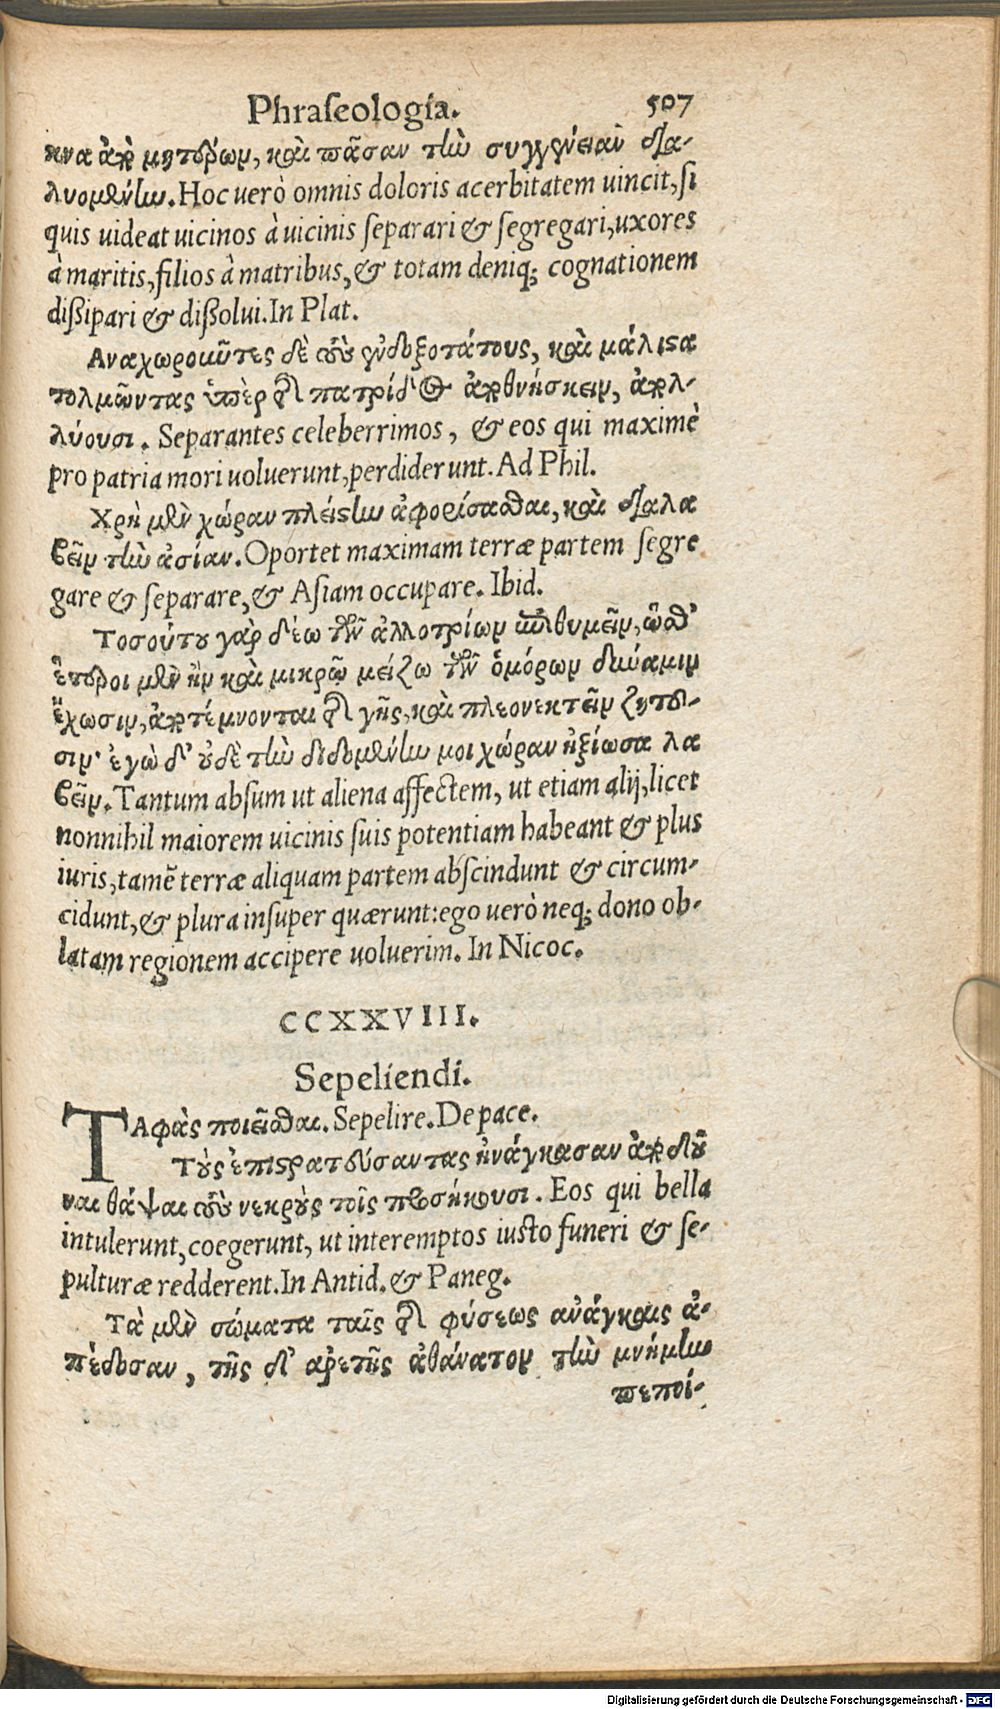 Phraſeologia. 507
κνα ἀπὸ μητέρων, καὶ πᾶσαν τὴν συγγένειαν δια-
λυομένην. Hoc verò omnis doloris acerbitatem uincit, ſi
quis uideat uicinos à uicinis ſeparari & ſegregari, uxores
à maritis, filios à matribus, & totam deniq; cognationem
diſsipari & diſsolui. In Plat.
Αναχωροῦντες δὲ τοὺς ἐνδοξοτάτους, καὶ μάλιστα
τολμῶντας ὑπὲρ τῆς πατρίδος ἀποθνήσκειν, ἀπολ-
λύουσι. Separantes celeberrimos, & eos qui maximè
pro patria mori uoluerunt, perdiderunt. Ad Phil.
Χρὴ μὲν χώραν πλείστην ἀφορίσασθαι, καὶ διαλα
βεῖν τὴν ἀσίαν. Oportet maximam terræ partem ſegre
gare & ſeparare, & Aſiam occupare. Ibid.
Τοσούτου γὰρ δέω τῶν ἀλλοτρίων ἐπιθυμεῖν, ὥσθ'
ἕτεροι μὲν ἢν καὶ μικρῷ μείζω τῶν ὁμόρων δύναμιν
ἔχωσιν, ἀποτέμνονται τῆς γῆς, καὶ πλεονεκτεῖν ζητοῦ-
σιν· ἐγὼ δ' οὐδὲ τὴν διδομένην μοι χώραν ἠξίωσα λα
βεῖν. Tantum abſum ut aliena affectem, ut etiam alij, licet
nonnihil maiorem uicinis ſuis potentiam habeant & plus
iuris, tamē terræ aliquam partem abſcindunt & circum-
cidunt, & plura inſuper quærunt: ego uerò neq; dono ob-
latam regionem accipere uoluerim. In Nicoc.
CCXXVIII.
Sepeliendi.
ΤΑφὰς ποιεῖσθαι. Sepelire. De pace.
Τοὺς ἐπιστρατεύσαντας ἠνάγκασαν ἀποδοῦ
ναι θάψαι τοὺς νεκροὺς τοῖς προσήκουσι. Eos qui bella
intulerunt, coegerunt, ut interemptos iuſto funeri & ſe-
pulturæ redderent. In Antid. & Paneg.
Τὰ μὲν σώματα ταῖς τῆς φύσεως ἀνάγκαις ἀ-
πέδοσαν, τῆς δ' ἀρετῆς ἀθάνατον τὴν μνήμην
πεποί-
Digitalisierung gefördert durch die Deutsche Forschungsgemeinschaft - DFG